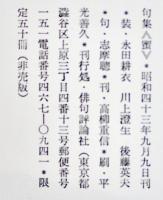 句集《蜜》*昭和四十三年九月九日刊
*装・永田耕衣 川上澄生 後藤英夫
*句・志摩聰*刊・高柳重信*刷・平
光善久*刊行処・俳句評論社(東京都
澁谷区上原三丁目四番十三号郵便番号
一五一電話番号四六七―〇九四一*限
定五十冊(非売版)